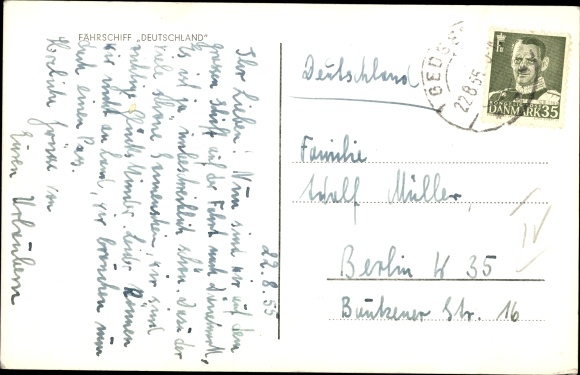 FÄHRSCHIFF „DEUTSCHLAND“
22.8.55
Ihr Lieben! Nun sind wir auf dem
grossen Schiff auf der Fahrt nach Dänemark,
Es ist ja unbeschreiblich schön. Trotz der
viele schöne Sonnenschein, wir sind
richtige Glückskinder. Leider können
wir nicht an Land, wir brauchen nun
doch einen Pass.
Herzliche Grüsse von
Euren Urlaubern
Deutschland
GEDSER
22.8.55
DANMARK 35
Familie
Adolf Müller,
Berlin W 35
Bautzener Str. 16
IV